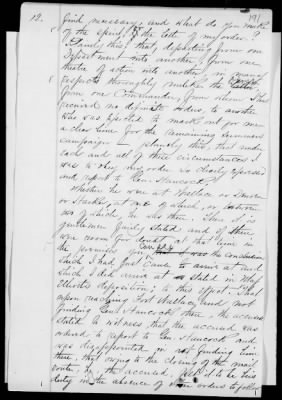 12.
find necessary, and what do you make
of the spirit, if the letter of my order?
Plainly this: that departing from one
Department into another, from one
theatre of action into another, in many
respects thoroughly unlike the
from one Commander, from whom I had
received no definite orders, to another
who was expected to mark out for me
a clear line for the remaining summer
campaign — plainly this, that under
each and all of these circumstances I
was to obey my order so clearly expressed
and report to Gen. Hancock.
Whether he were at Wallace or Denver
or Harker, at one of which, or between
two of which, he was then. Thus it is
gentlemen fairly stated and if there
were room for doubt at that time in
the premises from
which I had just to arrive at and
which I did arrive at as stated in Maj
Elliott's deposition, to this effect: That
upon reaching Fort Wallace and not
finding Gen. Hancock there, the accused
stated to witness that the accused was
ordered to report to Gen. Hancock and
was disappointed in not finding him
there, that owing to the closing of the mail
route, he, the accused, felt it to be his
duty in the absence of orders to follow